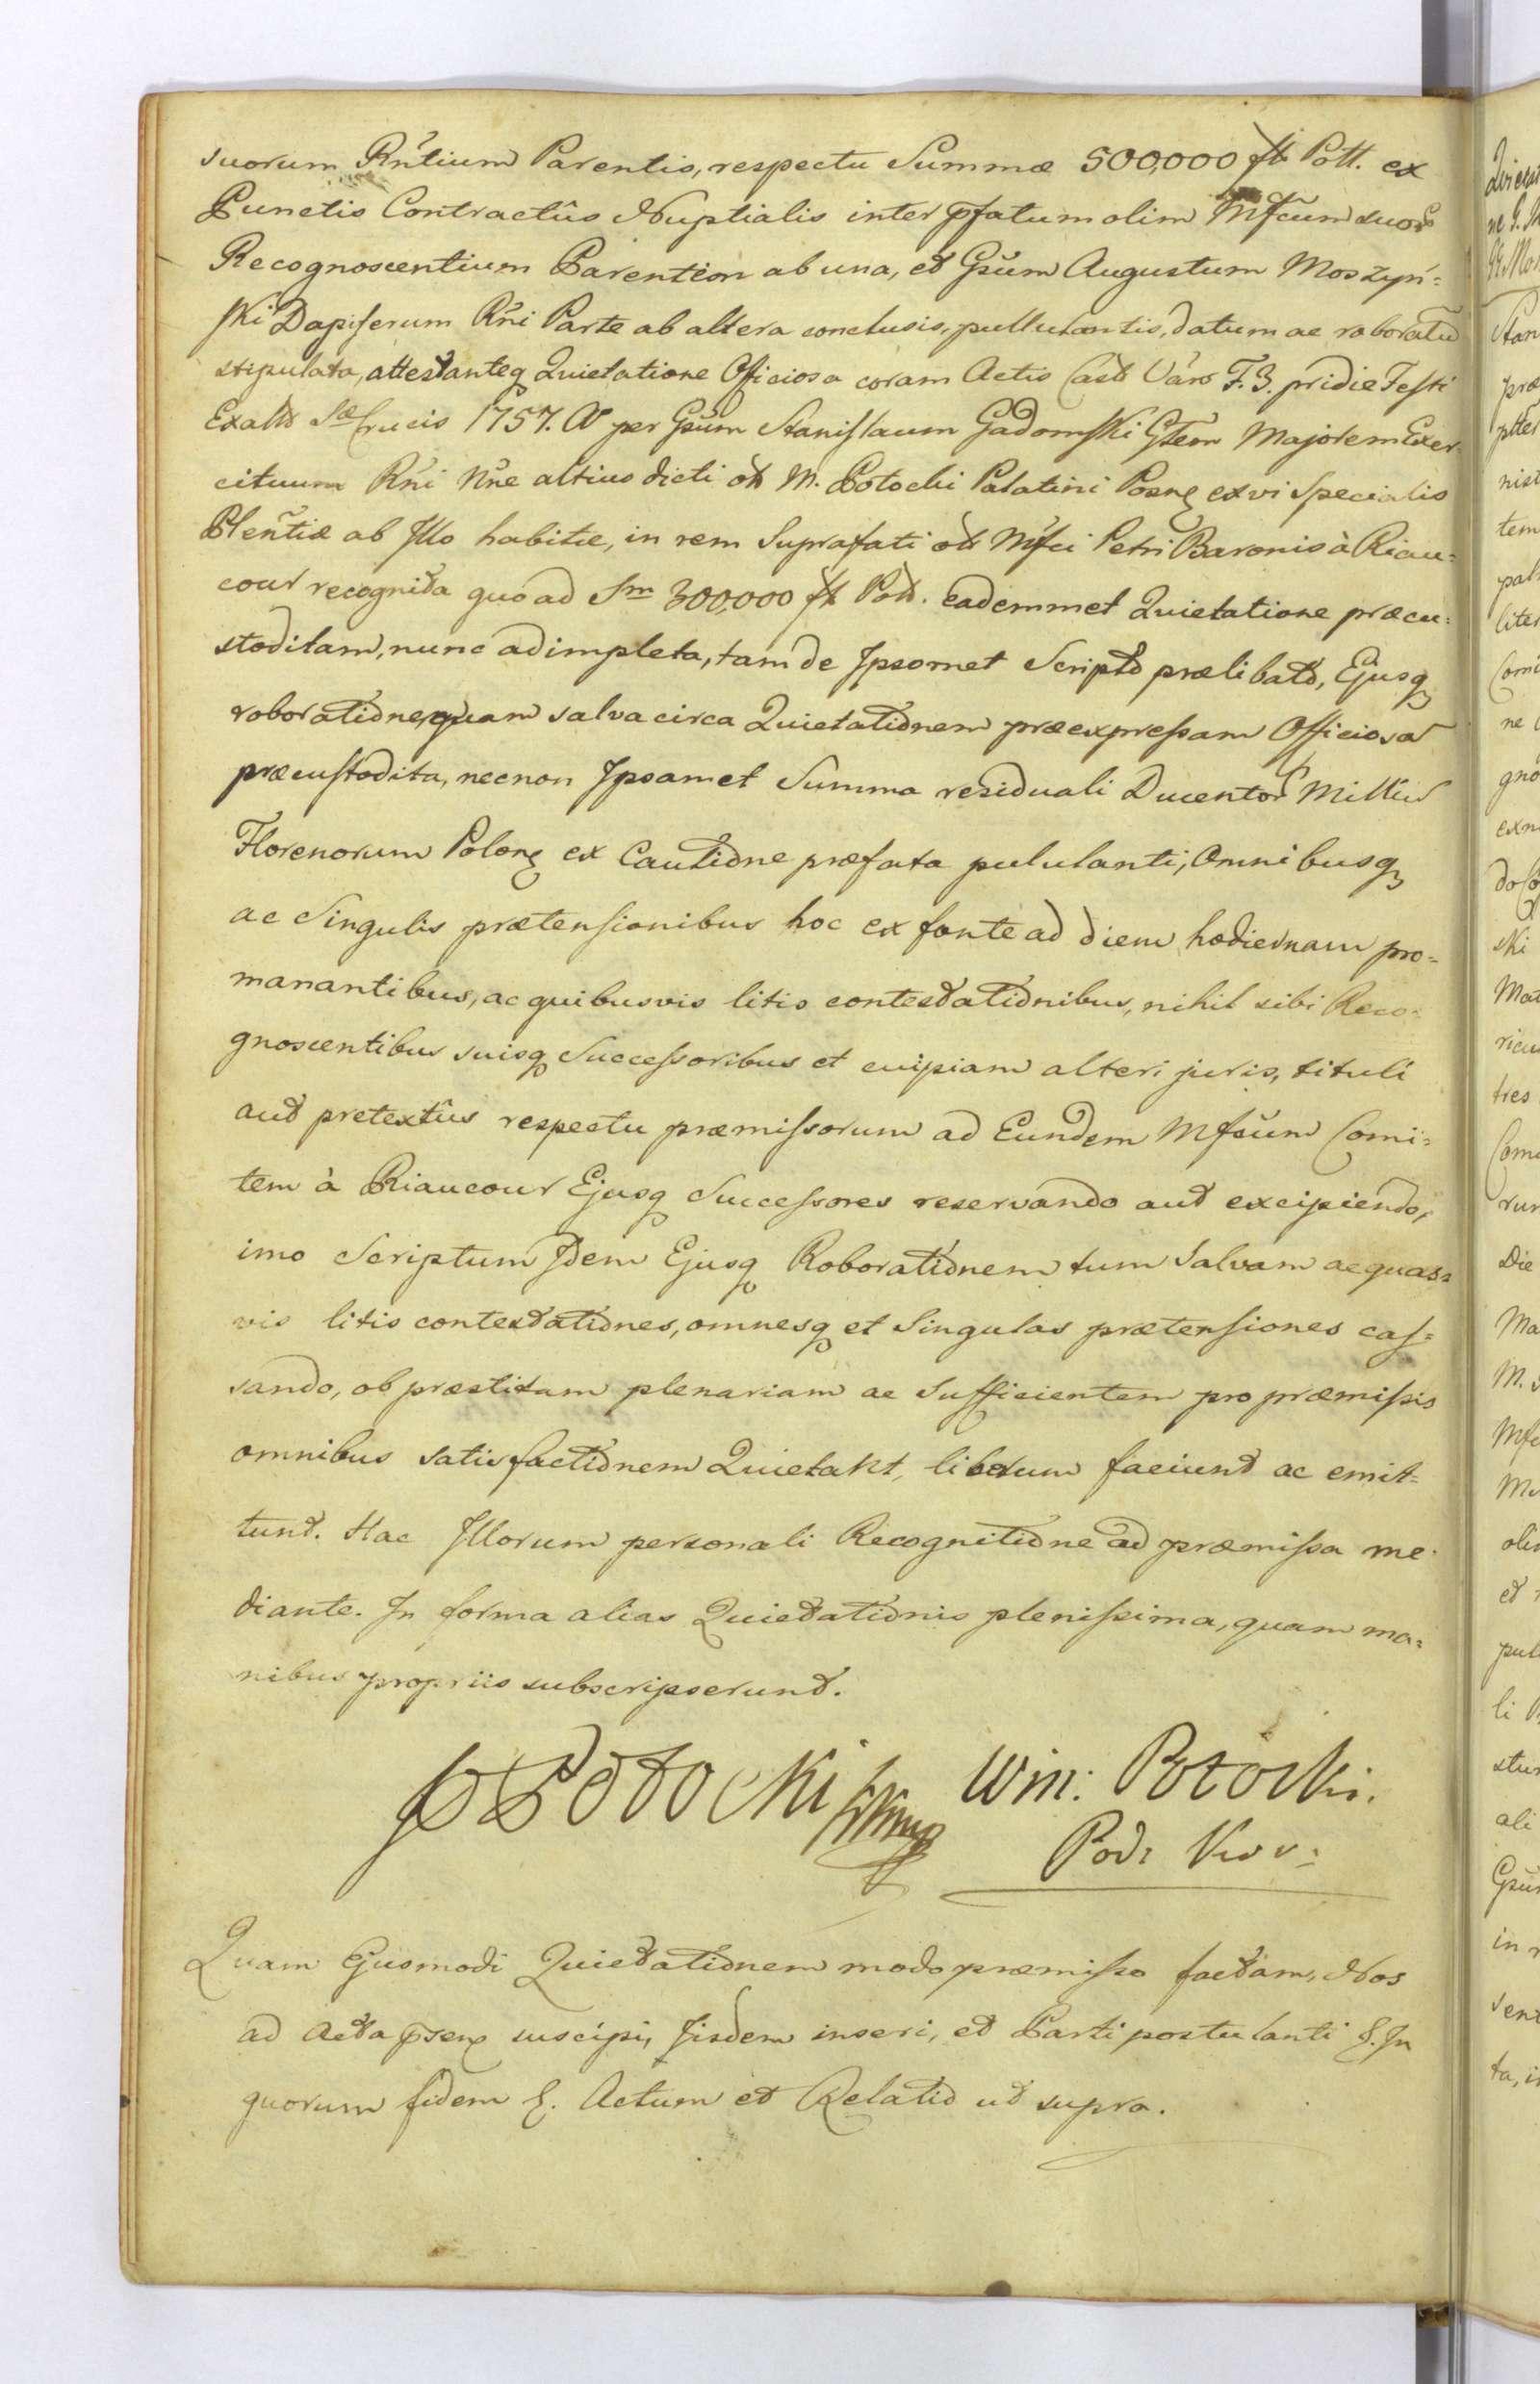 suorum Rntium Parentis, respectu Summæ 500,000 fl. Poll. ex
Punctis Contractûs Nuptialis inter pfatum olim Mfcum suor
Recognoscentium Parentem ab una, et Gsum Augustum Moszyń=
ski Dapiferum Rni Parte ab altera conclusis, pullulantis, datum ac roboratũ
stipulata, attestanteq Quietatione Officiosa coram Actis Cast Vars F. 3. pridie Festi
Exalt Sæ Crucis 1757. A per Gsum Stanislaum Gadomski Gñem Majorem Exer
cituum Rni Nne altius dicti ol M. Potocki Palatini Posnꝭ ex vi Specialis
Plentiæ ab Illo habitæ, in rem Suprafati ol Mfci Petri Baronis à Riau=
cour recognita quo ad Sm 300,000 fl Poll. eademmet Quietatione præcu=
stoditam, nunc adimpleta, tam de Ipsomet Scripto prælibato, Ejusq
roboratione, quam salva circa Quietationem præexpressam Officiosa
præcustodita, necnon Ipsamet Summa residuali Ducentor Milliũ
Florenorum Polonꝭ ex Cautione præfata pululanti, Omnibusq
ac Singulis prætensionibus hoc ex fonte ad diem hodiernam pro=
manantibus, ac quibusvis litis contestationibus, nihil sibi Reco=
gnoscentibus suisq Successoribus et cuipiam alteri juris, tituli
aut pretextûs respectu præmissorum ad Eundem Mfcum Comi=
tem à Riaucour Ejusq Successores reservando aut excipiendo,
imo Scriptum Idem Ejusq Roborationem tum Salvam ac quas=
vis litis contestationes, omnesq et Singulas prætensiones cas=
sando, ob præstitam plenariam ac Sufficientem pro præmissis
omnibus satisfactionem Quietant, liberum faciunt ac emit=
tunt. Hac Illorum personali Recognitione ad præmissa me=
diante. In forma alias Quietationis plenissima, quam ma=
nibus propriis subscripserunt.
Potocki Win: Potocki.
Pod: Kor:
Quam Ejusmodi Quietationem modo præmisso factam, Nos
ad Acta psenꝭ suscipi, Iisdem inseri, et Parti postulanti &. In
quorum fidem &. Actum et Relatio ut supra.